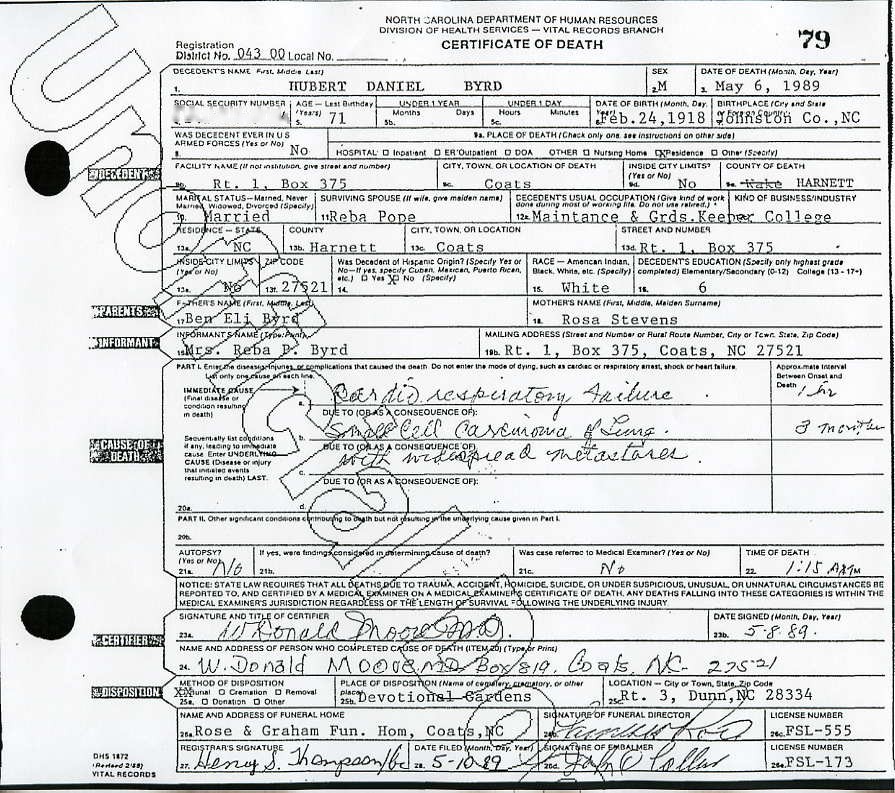 NORTH CAROLINA DEPARTMENT OF HUMAN RESOURCES
DIVISION OF HEALTH SERVICES — VITAL RECORDS BRANCH
CERTIFICATE OF DEATH
79
Registration
District No. 043 00 Local No.
DECEDENT'S NAME First, Middle, Last) SEX DATE OF DEATH (Month, Day, Year)
1. HUBERT DANIEL BYRD 2. M 3. May 6, 1989
SOCIAL SECURITY NUMBER AGE — Last Birthday UNDER 1 YEAR UNDER 1 DAY DATE OF BIRTH (Month, Day, BIRTHPLACE (City and State
(Years) Months Days Hours Minutes
5. 71 5b. 5c. Feb.24,1918 Johnston Co.,NC
WAS DECEDENT EVER IN U S 9a. PLACE OF DEATH (Check only one, see instructions on other side)
ARMED FORCES (Yes or No)
8. No HOSPITAL: Inpatient ER/Outpatient DOA OTHER Nursing Home X Residence Other (Specify)
DECEDENT
FACILITY NAME (If not institution, give street and number) CITY, TOWN, OR LOCATION OF DEATH INSIDE CITY LIMITS? COUNTY OF DEATH
(Yes or No)
9b. Rt. 1, Box 375 9c. Coats 9d. No 9e. Wake HARNETT
MARITAL STATUS—Married, Never SURVIVING SPOUSE (If wife, give maiden name) DECEDENT'S USUAL OCCUPATION (Give kind of work KIND OF BUSINESS/INDUSTRY
Married, Widowed, Divorced (Specify) done during most of working life. Do not use retired.)
10. Married 11. Reba Pope 12a. Maintance & Grds.Keeper College
RESIDENCE — STATE COUNTY CITY, TOWN, OR LOCATION STREET AND NUMBER
13a. NC 13b. Harnett 13c. Coats 13d. Rt. 1, Box 375
INSIDE CITY LIMITS ZIP CODE Was Decedent of Hispanic Origin? (Specify Yes or RACE — American Indian, DECEDENT'S EDUCATION (Specify only highest grade
(Yes or No) No—If yes, specify Cuban, Mexican, Puerto Rican, Black, White, etc. (Specify) completed) Elementary/Secondary (0-12) College (13 - 17+)
etc.) Yes X No (Specify)
13e. No 13f. 27521 14. 15. White 16. 6
PARENTS
FATHER'S NAME (First, Middle, Last) MOTHER'S NAME (First, Middle, Maiden Surname)
17. Ben Eli Byrd 18. Rosa Stevens
INFORMANT
INFORMANT'S NAME (Type/Print) MAILING ADDRESS (Street and Number or Rural Route Number, City or Town, State, Zip Code)
19a. Mrs. Reba P. Byrd 19b. Rt. 1, Box 375, Coats, NC 27521
PART I. Enter the diseases, injuries, or complications that caused the death. Do not enter the mode of dying, such as cardiac or respiratory arrest, shock or heart failure. Approximate Interval
List only one cause on each line. Between Onset and
Death
IMMEDIATE CAUSE
(Final disease or
condition resulting
in death)
a. Cardio respiratory failure 1 hr
DUE TO (OR AS A CONSEQUENCE OF):
CAUSE OF
DEATH
Sequentially list conditions
if any, leading to immediate
cause. Enter UNDERLYING
CAUSE (Disease or injury
that initiated events
resulting in death) LAST.
b. Small Cell Carcinoma of Lung. 3 months
DUE TO (OR AS A CONSEQUENCE OF)
c. with widespread metastases.
DUE TO (OR AS A CONSEQUENCE OF):
20a. d.
PART II. Other significant conditions contributing to death but not resulting in the underlying cause given in Part I.
20b.
AUTOPSY? If yes, were findings considered in determining cause of death? Was case referred to Medical Examiner? (Yes or No) TIME OF DEATH
(Yes or No)
21a. No 21b. 21c. No 22. 1:15
NOTICE: STATE LAW REQUIRES THAT ALL DEATHS DUE TO TRAUMA, ACCIDENT, HOMICIDE, SUICIDE, OR UNDER SUSPICIOUS, UNUSUAL, OR UNNATURAL CIRCUMSTANCES BE
REPORTED TO, AND CERTIFIED BY A MEDICAL EXAMINER ON A MEDICAL EXAMINER'S CERTIFICATE OF DEATH. ANY DEATHS FALLING INTO THESE CATEGORIES IS WITHIN THE
MEDICAL EXAMINER'S JURISDICTION REGARDLESS OF THE LENGTH OF SURVIVAL FOLLOWING THE UNDERLYING INJURY.
CERTIFIER
SIGNATURE AND TITLE OF CERTIFIER DATE SIGNED (Month, Day, Year)
23a. W Donald Moore MD. 23b. 5-8-89.
NAME AND ADDRESS OF PERSON WHO COMPLETED CAUSE OF DEATH (ITEM 20) (Type or Print)
24. W. Donald Moore MD Box 819, Coats, NC- 27521
DISPOSITION
METHOD OF DISPOSITION PLACE OF DISPOSITION (Name of cemetery, crematory, or other LOCATION — City or Town, State, Zip Code
XX Burial Cremation Removal place)
25a. Donation Other 25b. Devotional Gardens 25c. Rt. 3, Dunn,NC 28334
NAME AND ADDRESS OF FUNERAL HOME SIGNATURE OF FUNERAL DIRECTOR LICENSE NUMBER
26a. Rose & Graham Fun. Hom, Coats,NC 26b. 26c. FSL-555
REGISTRAR'S SIGNATURE DATE FILED (Month, Day, Year) SIGNATURE OF EMBALMER LICENSE NUMBER
27. Henry S. Thompson/bc 28. 5-10-89 26d. 26e. FSL-173
DHS 1872
(Revised 2/88)
VITAL RECORDS
Unofficial